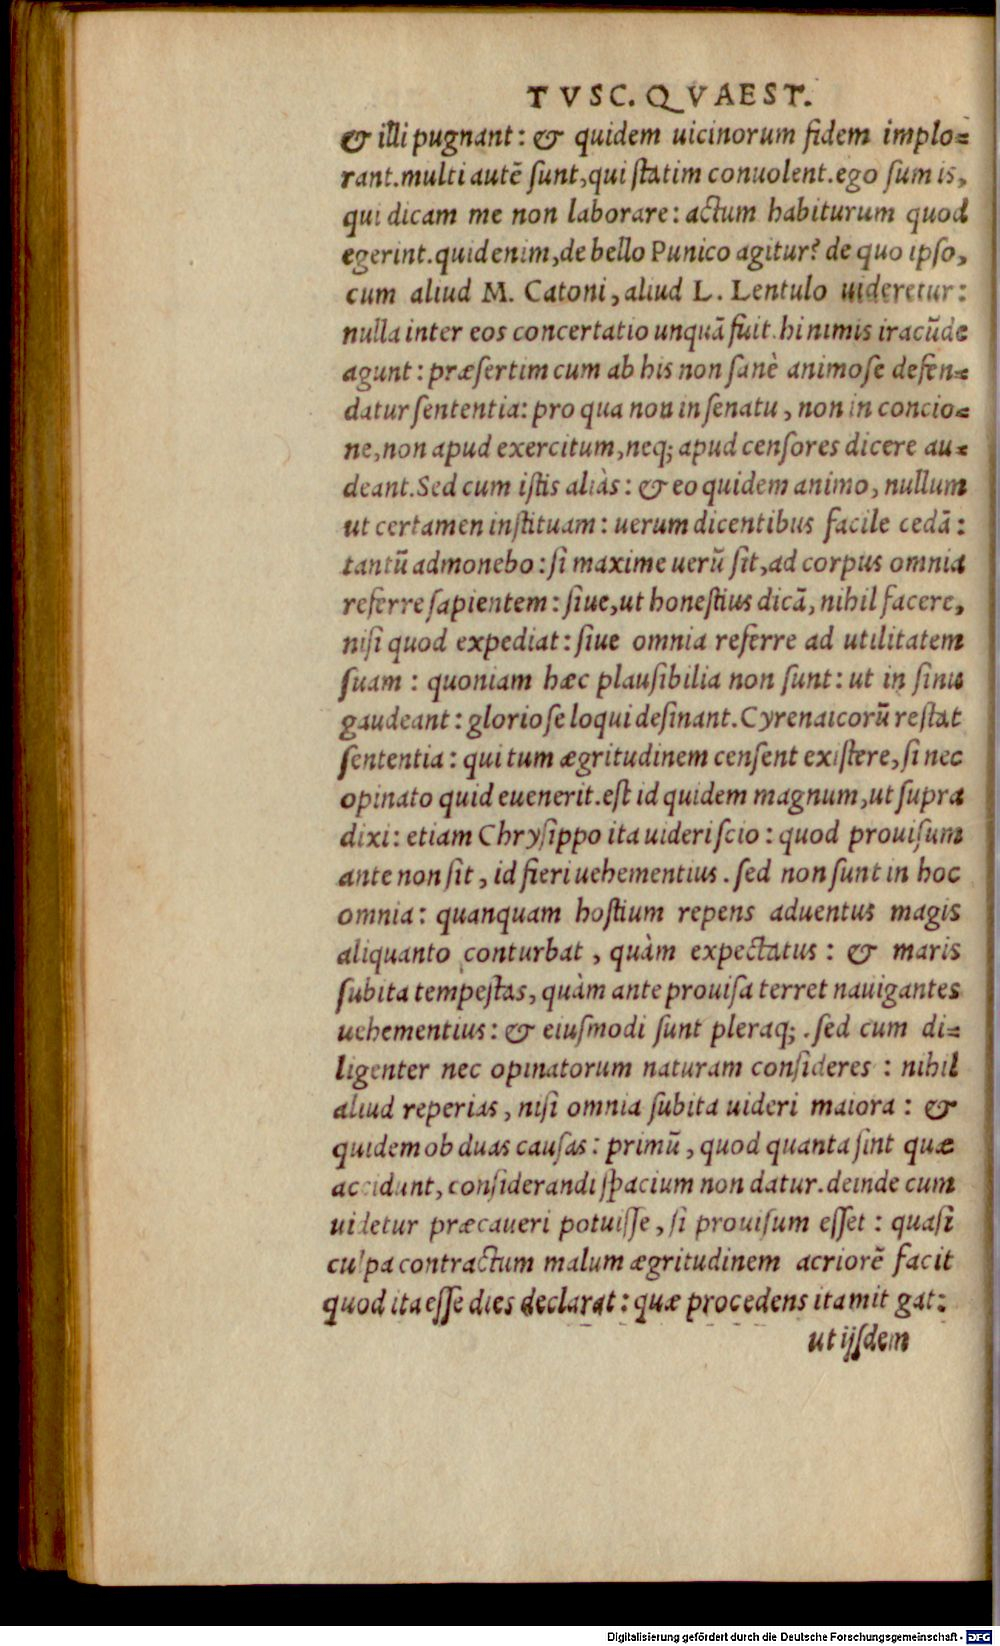 TVSC. QVAEST.
& illi pugnant: & quidem uicinorum fidem implo=
rant. multi autē ſunt, qui ſtatim conuolent. ego ſum is,
qui dicam me non laborare: actum habiturum quod
egerint. quid enim, de bello Punico agitur? de quo ipſo,
cum aliud M. Catoni, aliud L. Lentulo uideretur:
nulla inter eos concertatio unquā fuit. hi nimis iracūde
agunt: præſertim cum ab his non ſanè animoſe defen=
datur ſententia: pro qua non in ſenatu, non in concio=
ne, non apud exercitum, neq; apud cenſores dicere au=
deant. Sed cum iſtis aliàs: & eo quidem animo, nullum
ut certamen inſtituam: uerum dicentibus facile cedā:
tantū admonebo: ſi maxime uerū ſit, ad corpus omnia
referre ſapientem: ſiue, ut honeſtius dicā, nihil facere,
niſi quod expediat: ſiue omnia referre ad utilitatem
ſuam: quoniam hæc plauſibilia non ſunt: ut in ſinu
gaudeant: glorioſe loqui deſinant. Cyrenaicorū reſtat
ſententia: qui tum ægritudinem cenſent exiſtere, ſi nec
opinato quid euenerit. eſt id quidem magnum, ut ſupra
dixi: etiam Chryſippo ita uideri ſcio: quod prouiſum
ante non ſit, id fieri uehementius. ſed non ſunt in hoc
omnia: quanquam hoſtium repens aduentus magis
aliquanto conturbat, quàm expectatus: & maris
ſubita tempeſtas, quàm ante prouiſa terret nauigantes
uehementius: & eiuſmodi ſunt pleraq;. ſed cum di=
ligenter nec opinatorum naturam conſideres: nihil
aliud reperias, niſi omnia ſubita uideri maiora: &
quidem ob duas cauſas: primū, quod quanta ſint quæ
accidunt, conſiderandi ſpacium non datur. deinde cum
uidetur præcaueri potuiſſe, ſi prouiſum eſſet: quaſi
culpa contractum malum ægritudinem acriorē facit
quod ita eſſe dies declarat: quæ procedens ita mit gat:
ut ijſdem
Digitalisierung gefördert durch die Deutsche Forschungsgemeinschaft - DFG